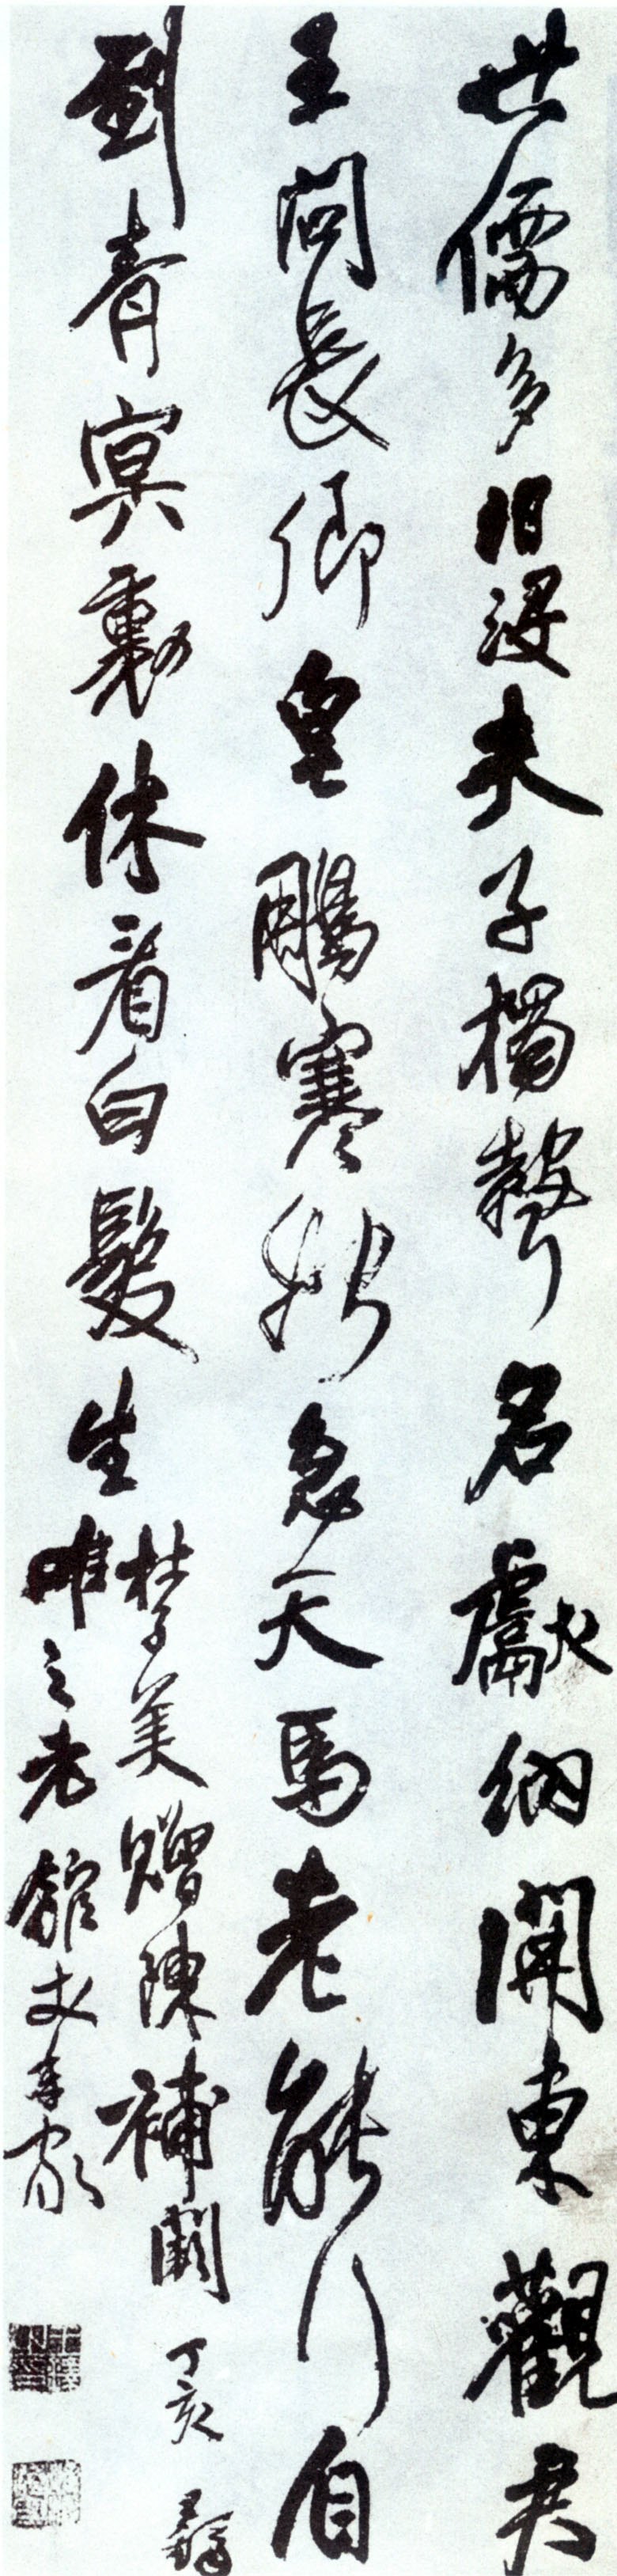 世儒多汨沒夫子獨聲名獻納開東觀君
王問長卿皂鵰寒始急天馬老能行自
到青冥裏休看白髮生
杜子美贈陳補闕 丁亥 王鐸
唯之老舘丈年家